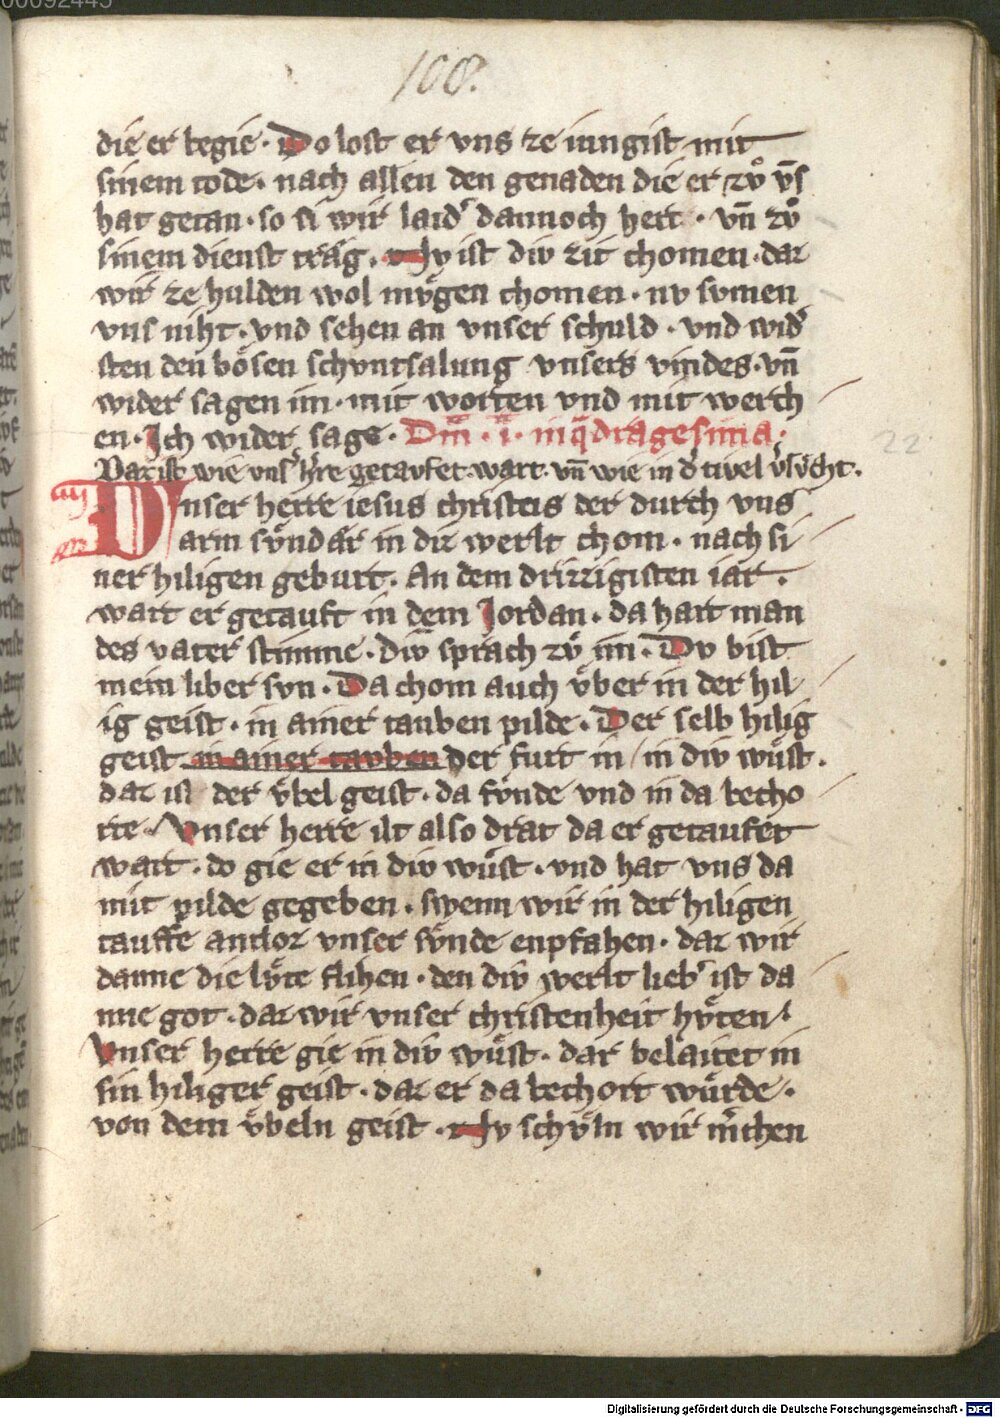 00092445
108.
die er begie. Do lost er vns ze iungist mit
sinem tode. nach allen den genaden die er zvͦ vn̄s
hat getan. so si wir laid' dannoch hert. vn̄ zvͦ
sinem dienst trág. Nv ist div zit chomen. daz
wir ze hulden wol mvͤgen chomen. nv svmen
vns niht. vnd sehen an vnser schuld. vnd wid'
sten den bósen schvntsalung vnsers vindes. vn̄
wider sagen im. mit worten vnd mit werch
en. Ich wider sage. Dm̄. i. in q̄dragesima.
Daz ist wie vns' h're getavfet wart. vn̄ wie in d' tivel v'sv̊cht.
Unser herre iesus christus der durch vns
arm svͤndár in die werlt chom. nach si
ner hiligen geburt. An dem drizzigisten iar.
wart er getauft in dem Jordan. da hart man
des vater stimme. div sprach zvͦ im. Dv bist
mein liber svn. Da chom auch vͤber in der hil
ig geist. in ainer tauben pilde. Der selb hilig
geist in ainer tavben der furt in / in div wuͤst.
daz in der vͤbel geist. da fvͤnde vnd in da becho
rte. Vnser herre ilt also drat da er getaufet
wart. do gie er in div wuͤst. vnd hat vns da
mit pilde gegeben. swenn wir in der hiligen
tauffe antloz vnser svͤnde enpfahen. daz wir
danne die lvͤte flihen. den div werlt lieb' ist da
nne got. daz wir vnser christenheit hvͤten.
Vnser herre gie in div wuͤst. dar belaitet in
sin hiliger geist. daz er da bechort wuͤrde.
von dem vͤbeln geist. Nv schvͤln wir m'chen
22
Digitalisierung gefördert durch die Deutsche Forschungsgemeinschaft - DFG